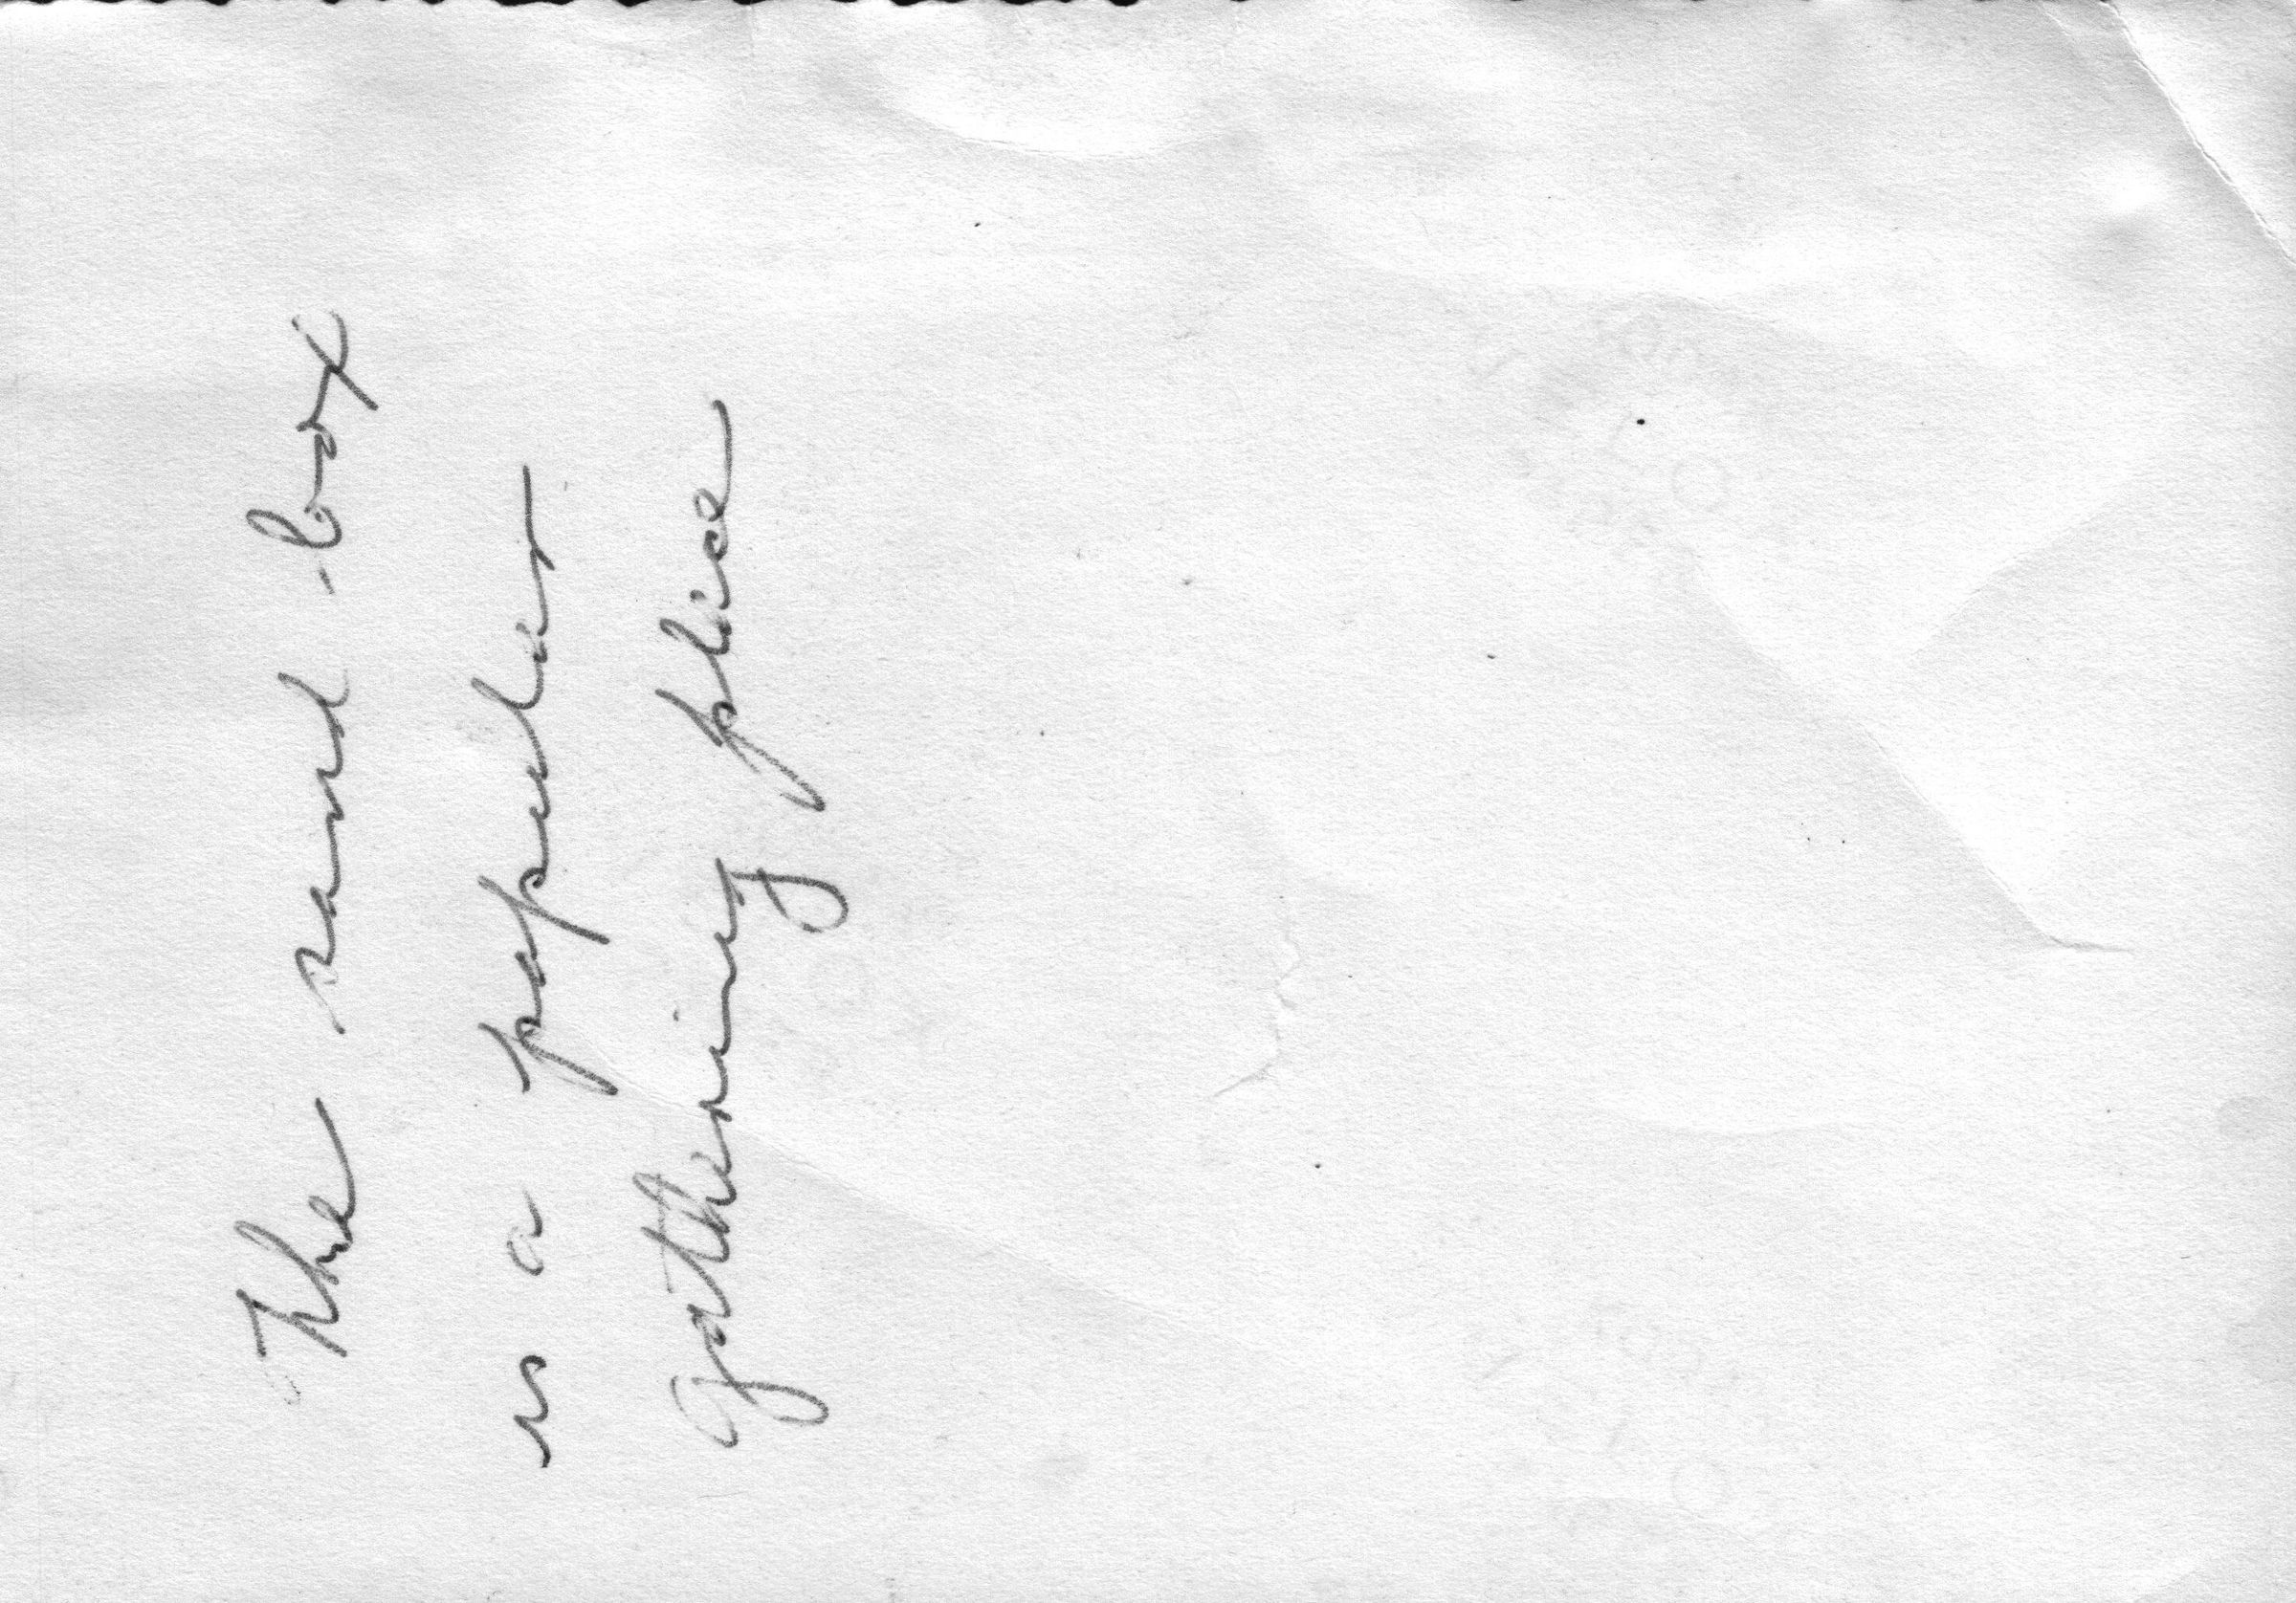 The sand-box
is a popular
gathering place